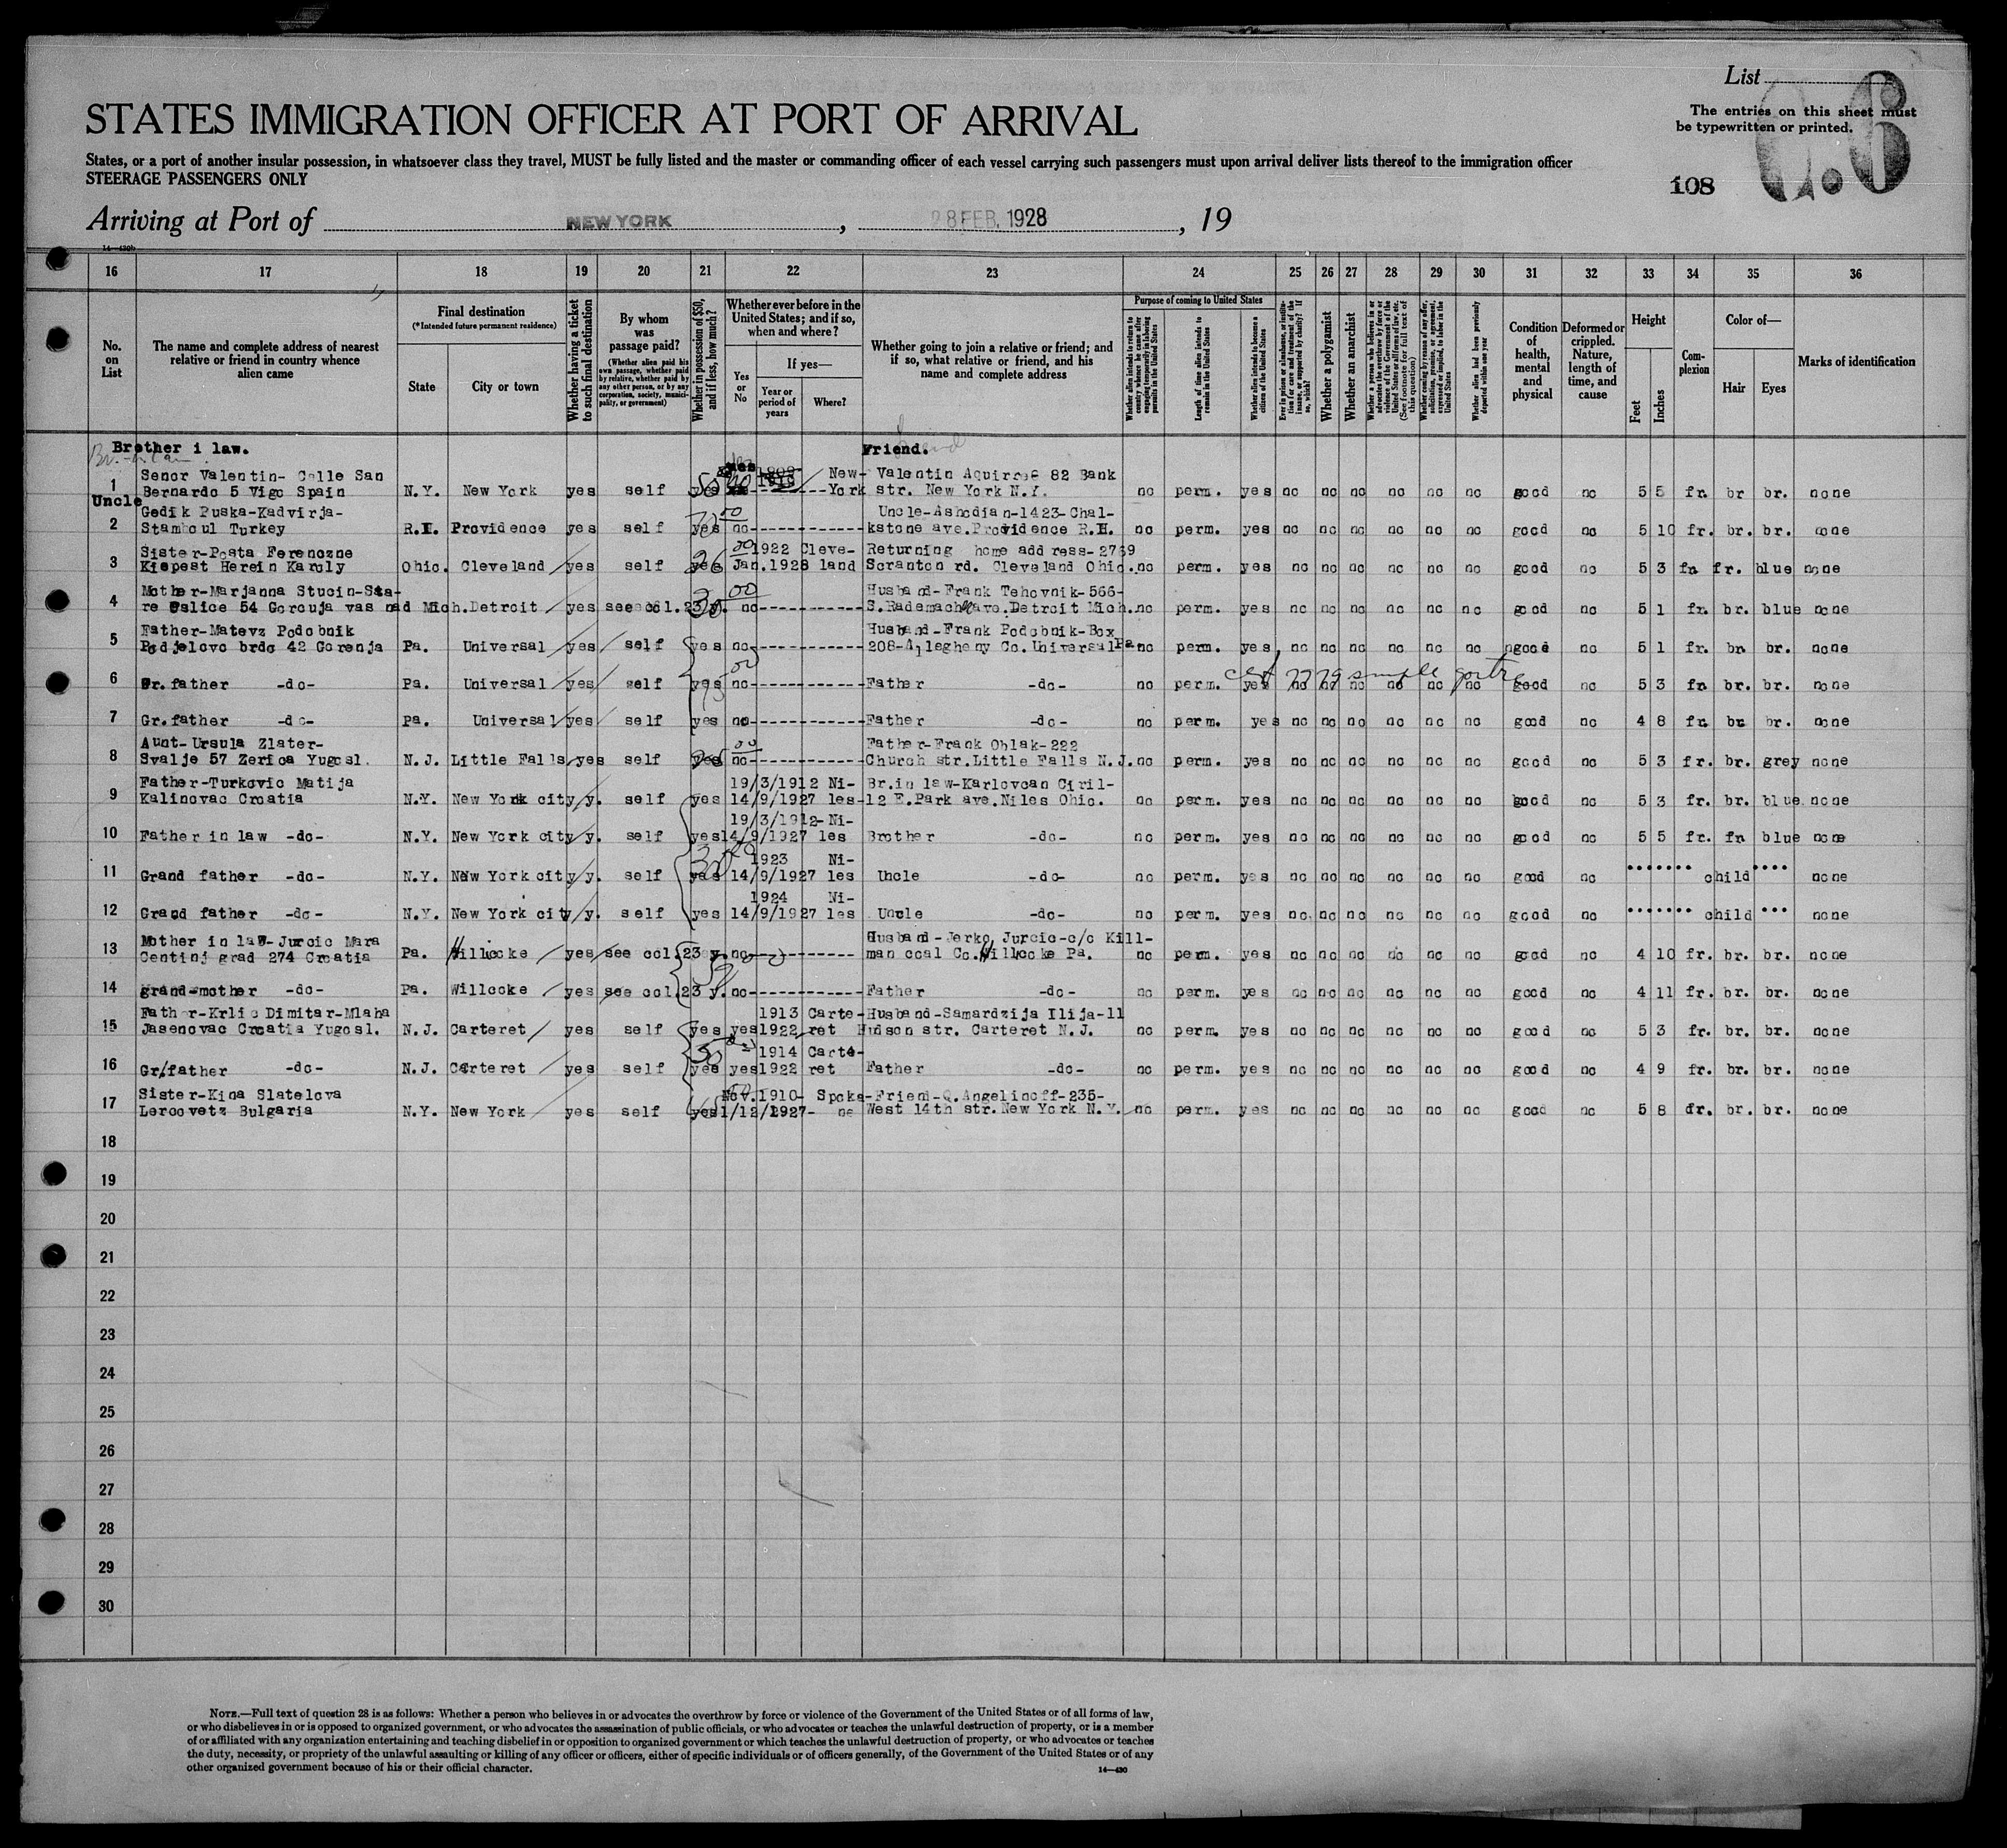 List
The entries on this sheet must
be typewritten or printed.
STATES IMMIGRATION OFFICER AT PORT OF ARRIVAL
States, or a port of another insular possession, in whatsoever class they travel, MUST be fully listed and the master or commanding officer of each vessel carrying such passengers must upon arrival deliver lists thereof to the immigration officer
STEERAGE PASSENGERS ONLY
108
Arriving at Port of NEW YORK , 28 FEB. 1928 , 19
14—430b
16 17 18 19 20 21 22 23 24 25 26 27 28 29 30 31 32 33 34 35 36
No. on List
The name and complete address of nearest relative or friend in country whence alien came
Final destination
(*Intended future permanent residence)
State
City or town
Whether having a ticket to such final destination
By whom was passage paid?
(Whether alien paid his own passage, whether paid by relative, whether paid by any other person, or by any corporation, society, municipality, or government)
Whether in possession of $50, and if less, how much?
Whether ever before in the United States; and if so, when and where?
Yes or No
If yes—
Year or period of years
Where?
Whether going to join a relative or friend; and if so, what relative or friend, and his name and complete address
Purpose of coming to United States
Whether alien intends to return to country whence he came after engaging temporarily in laboring pursuits in the United States
Length of time alien intends to remain in the United States
Whether alien intends to become a citizen of the United States
Ever in prison or almshouse, or institution for care and treatment of the insane, or supported by charity? If so, which?
Whether a polygamist
Whether an anarchist
Whether a person who believes in or advocates the overthrow by force or violence of the Government of the United States or all forms of law, etc. (See footnote for full text of this question)
Whether coming by reason of any offer, solicitation, promise, or agreement, expressed or implied, to labor in the United States
Whether alien had been previously deported within one year
Condition of health, mental and physical
Deformed or crippled. Nature, length of time, and cause
Height
Feet
Inches
Complexion
Color of—
Hair
Eyes
Marks of identification
Brother i law. Friend.
Senor Valentin- Calle San New- Valentin Aquirree 82 Bank
1 Bernardo 5 Vigo Spain N.Y. New York yes self yes York str. New York N.Y. no perm. yes no no no no no no good no 5 5 fr. br br. none
Uncle
Gedik Puska-Kadvirja- Uncle-Ashodian-1423-Chal-
2 Stamboul Turkey R.I. Providence yes self yes no kstone ave.Providence R.H. no perm. yes no no no no no no good no 5 10 fr. br. br. none
Sister-Posta Ferenczne 1922 Cleve- Returning home add ress-2769
3 Kispest Herein Karoly Ohio. Cleveland yes self yes Jan.1928 land Scranton rd. Cleveland Ohio. no perm. yes no no no no no no good no 5 3 fr fr. blue none
Mother-Marjanna Stucin-Sta- Husband-Frank Tehovnik-566-
4 re Oslice 54 Gorouja vas nad Mich. Detroit yes see col.23 y. no S.Rademacher ave.Detroit Mich. no perm. yes no no no no no no good no 5 1 fr. br. blue none
Father-Matevz Podobnik Husband-Frank Podobnik-Box
5 Podjelovo brdo 42 Gorenja Pa. Universal yes self yes no 208-Allegheny Co. Universal Pa. no perm. yes no no no no no no good no 5 1 fr. br br. none
cert 7779 simple goitre
6 Gr.father -do- Pa. Universal yes self yes no Father -do- no perm. yes no no no no no no good no 5 3 fr br. br. none
7 Gr.father -do- Pa. Universal yes self yes no Father -do- no perm. yes no no no no no no good no 4 8 fr br br. none
Aunt-Ursula Zlater- Father-Frank Oblak-222
8 Svalje 57 Zerica Yugosl. N.J. Little Falls yes self yes no Church str.Little Falls N.J. no perm. yes no no no no no no good no 5 3 fr. br. grey none
Father-Turkovic Matija 19/3/1912 Ni- Br.in law-Karlovcan Ciril-
9 Kalinovac Croatia N.Y. New York city y. self yes 14/9/1927 les- 12 E.Park ave.Niles Ohio. no perm. yes no no no no no no good no 5 3 fr. br. blue. none
19/3/1912-Ni-
10 Father in law -do- N.Y. New York city y. self yes 14/9/1927 les Brother -do- no perm. yes no no no no no no good no 5 5 fr. fr blue none
1923 Ni-
11 Grand father -do- N.Y. New York city y. self yes 14/9/1927 les Uncle -do- no perm. yes no no no no no no good no child none
1924 Ni-
12 Grand father -do- N.Y. New York city y. self yes 14/9/1927 les Uncle -do- no perm. yes no. no no no no no good no child none
Mother in law-Jurcic Mara Husband-Jerko Jurcic-c/c Kill-
13 Centinj grad 274 Croatia Pa. Hillcoke yes see col.23 y. no man coal Co. Hillcoke Pa. no perm. yes no no no no no no good no 4 10 fr. br. br. none
14 grand-mother -do- Pa. Willcoke yes see col.23 y. no Father -do- no perm. yes no no no no no no good no 4 11 fr. br. br. none
Father-Krlic Dimitar-Mlaha 1913 Carte- Husband-Samardzija Ilija-11
15 Jasenovac Croatia Yugosl. N.J. Carteret yes self yes yes 1922 ret Hudson str. Carteret N.J. no perm. yes no no no no no no good no 5 3 fr. br. br. none
1914 Carte-
16 Gr/father -do- N.J. Carteret yes self yes yes 1922 ret Father -do- no perm. yes no no no no no no good no 4 9 fr. br. br. none
Sister-Kina Slatelova Nov.1910- Spoka- Friend-Q.Angelinoff-235-
17 Lercovetz Bulgaria N.Y. New York yes self yes 1/12/1927- ne West 14th str.New York N.Y. no perm. yes no no no no no no good no 5 8 fr. br. br. none
18
19
20
21
22
23
24
25
26
27
28
29
30
NOTE.—Full text of question 28 is as follows: Whether a person who believes in or advocates the overthrow by force or violence of the Government of the United States or of all forms of law,
or who disbelieves in or is opposed to organized government, or who advocates the assassination of public officials, or who advocates or teaches the unlawful destruction of property, or is a member
of or affiliated with any organization entertaining and teaching disbelief in or opposition to organized government or which teaches the unlawful destruction of property, or who advocates or teaches
the duty, necessity, or propriety of the unlawful assaulting or killing of any officer or officers, either of specific individuals or of officers generally, of the Government of the United States or of any
other organized government because of his or their official character.
14—430